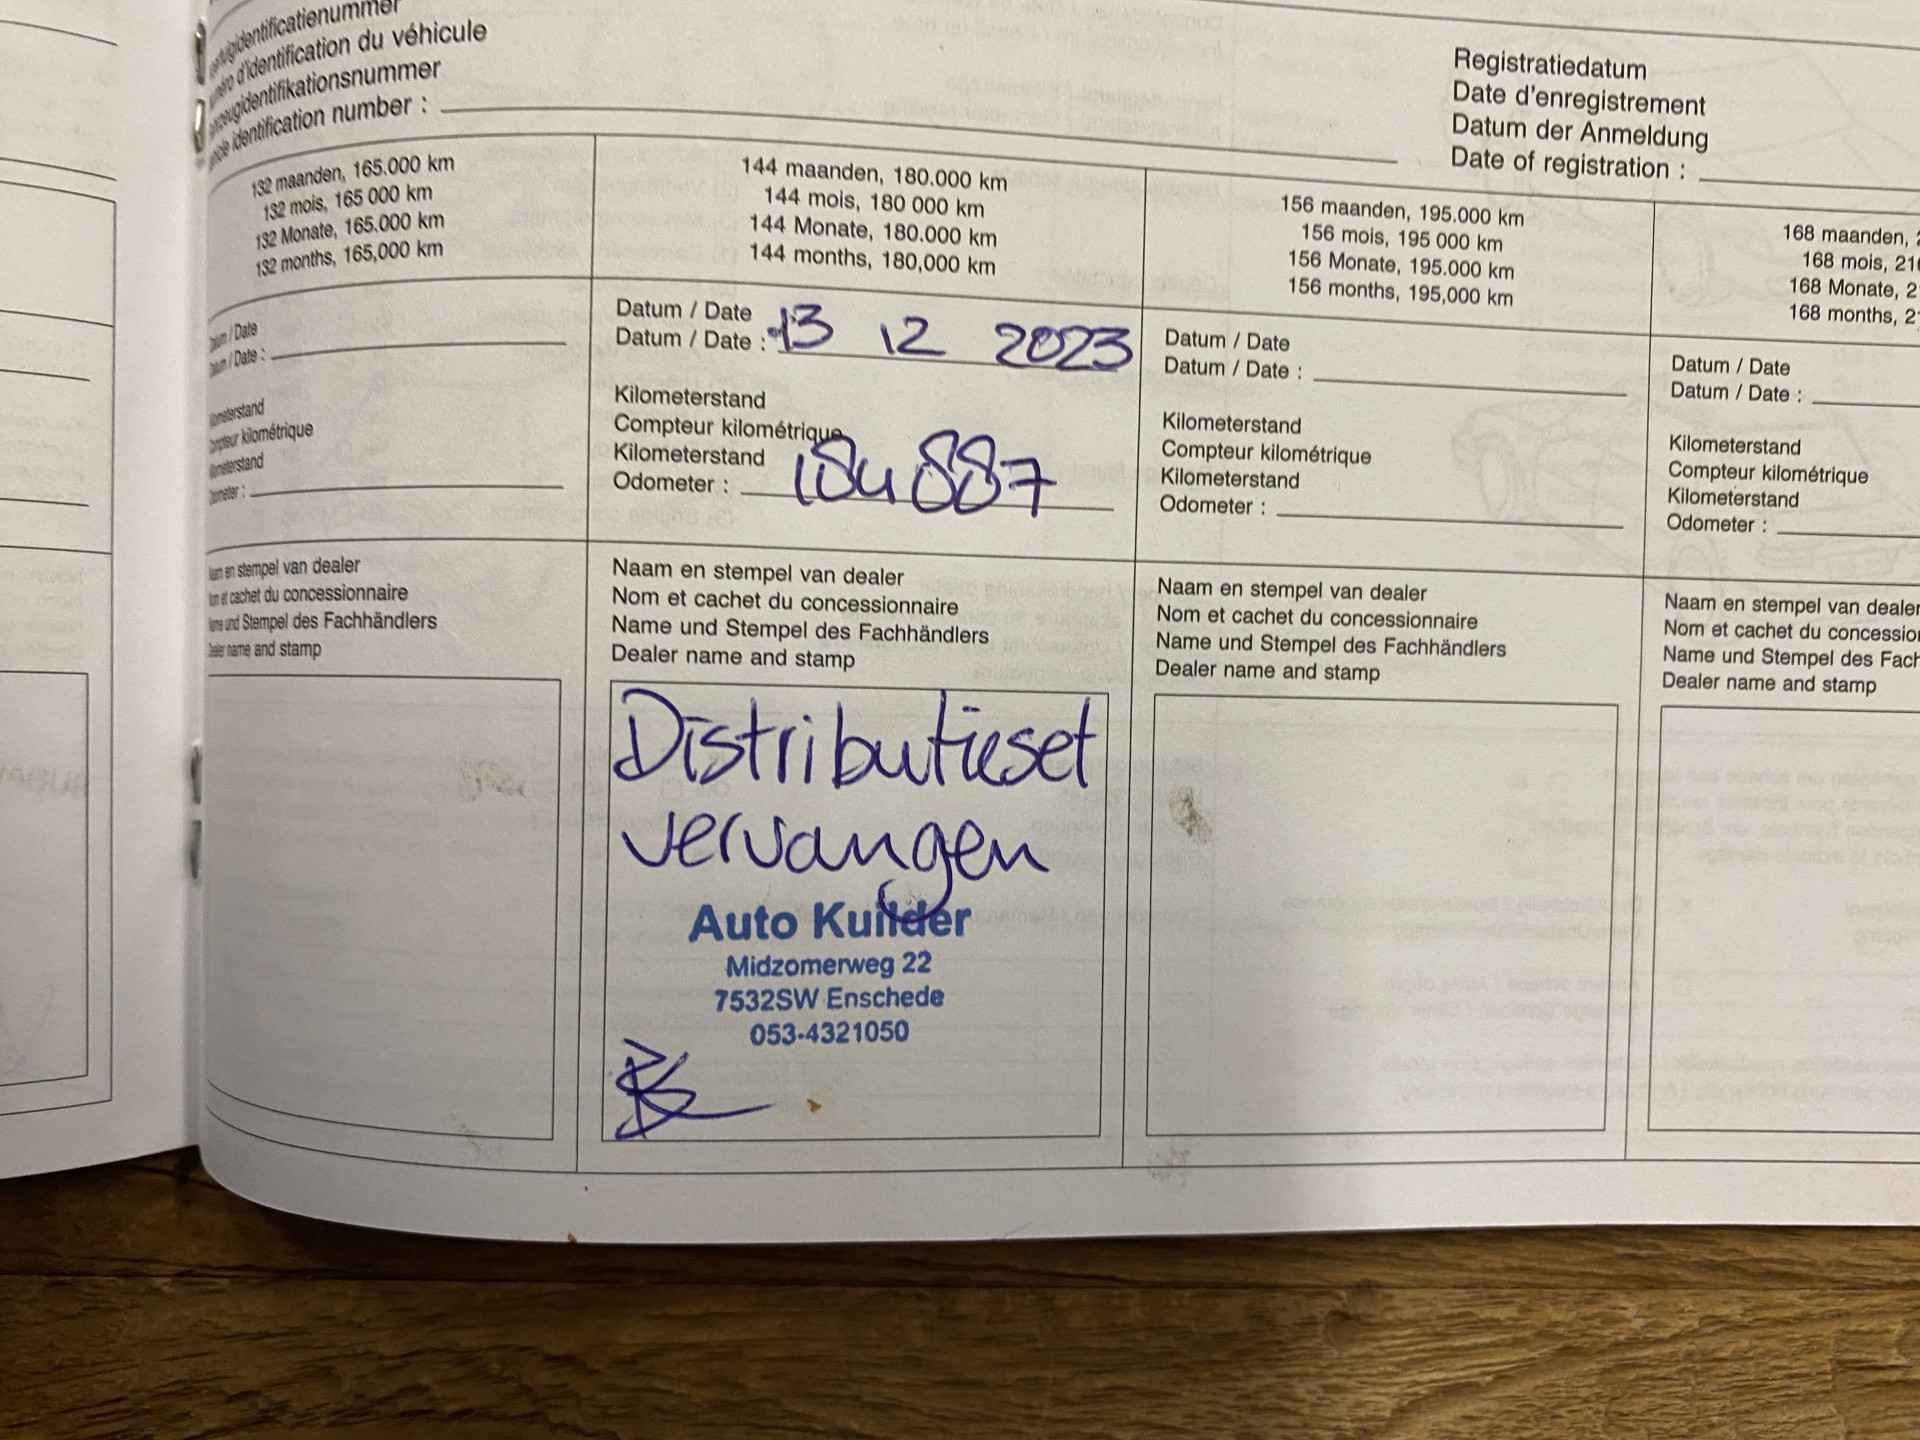 d'identification du véhicule
identification number :
Registratiedatum
Date d'enregistrement
Datum der Anmeldung
Date of registration :
132 maanden, 165.000 km
132 mois, 165 000 km
132 Monate, 165.000 km
132 months, 165,000 km
144 maanden, 180.000 km
144 mois, 180 000 km
144 Monate, 180.000 km
144 months, 180,000 km
156 maanden, 195.000 km
156 mois, 195 000 km
156 Monate, 195.000 km
156 months, 195,000 km
168 maanden,
168 mois,
168 Monate,
168 months,
/ Date
/ Date :
kilométrique
Datum / Date
Datum / Date : 13 12 2023
Kilometerstand
Compteur kilométrique
Kilometerstand
Odometer : 184887
Datum / Date
Datum / Date :
Kilometerstand
Compteur kilométrique
Kilometerstand
Odometer :
Datum / Date
Datum / Date :
Kilometerstand
Compteur kilométrique
Kilometerstand
Odometer :
en stempel van dealer
et cachet du concessionnaire
und Stempel des Fachhändlers
name and stamp
Naam en stempel van dealer
Nom et cachet du concessionnaire
Name und Stempel des Fachhändlers
Dealer name and stamp
Distributieset
vervangen
Auto Kuilder
Midzomerweg 22
7532SW Enschede
053-4321050
Naam en stempel van dealer
Nom et cachet du concessionnaire
Name und Stempel des Fachhändlers
Dealer name and stamp
Naam en stempel van dealer
Nom et cachet du
Name und Stempel des
Dealer name and stamp